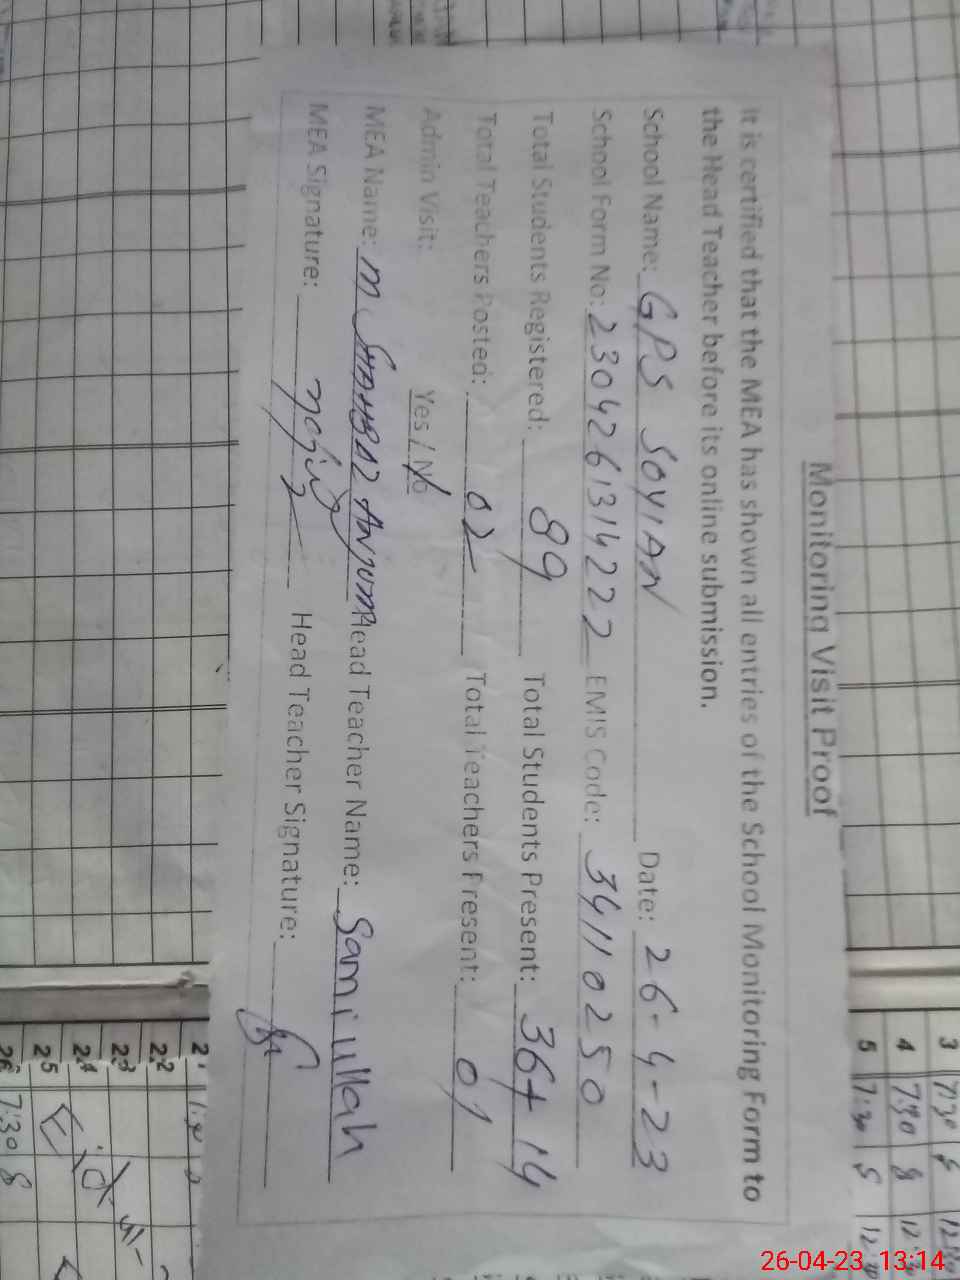 Monitoring Visit Proof
It is certified that the MEA has shown all entries of the School Monitoring Form to
the Head Teacher before its online submission.
School Name: GPS SOYIAN Date: 26-4-23
School Form No: 23042613142 22 EMIS Code: 34110250
Total Students Registered: 89 Total Students Present: 36+14
Total Teachers Posted: 02 Total Teachers Present: 01
Admin Visit: Yes / No
MEA Name: M SHAHBAZ ANJUM Head Teacher Name: Samiullah
MEA Signature: Head Teacher Signature:
3 7:30
4 7:30 8 12
5 7:30 8 12
22
23
24
25
26 7:30 8
26-04-23 13:14